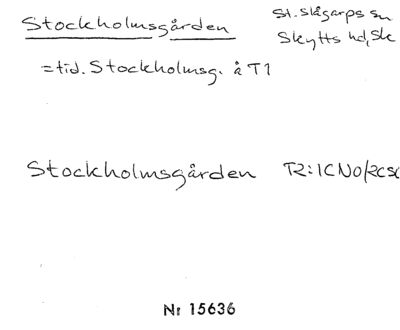 Stockholmsgården
St. Slågarps sn
Skytts hd, Sk
= tid. Stockholmsg. å T1
Stockholmsgården T2: 1C NO/2C SO
Nr 15636